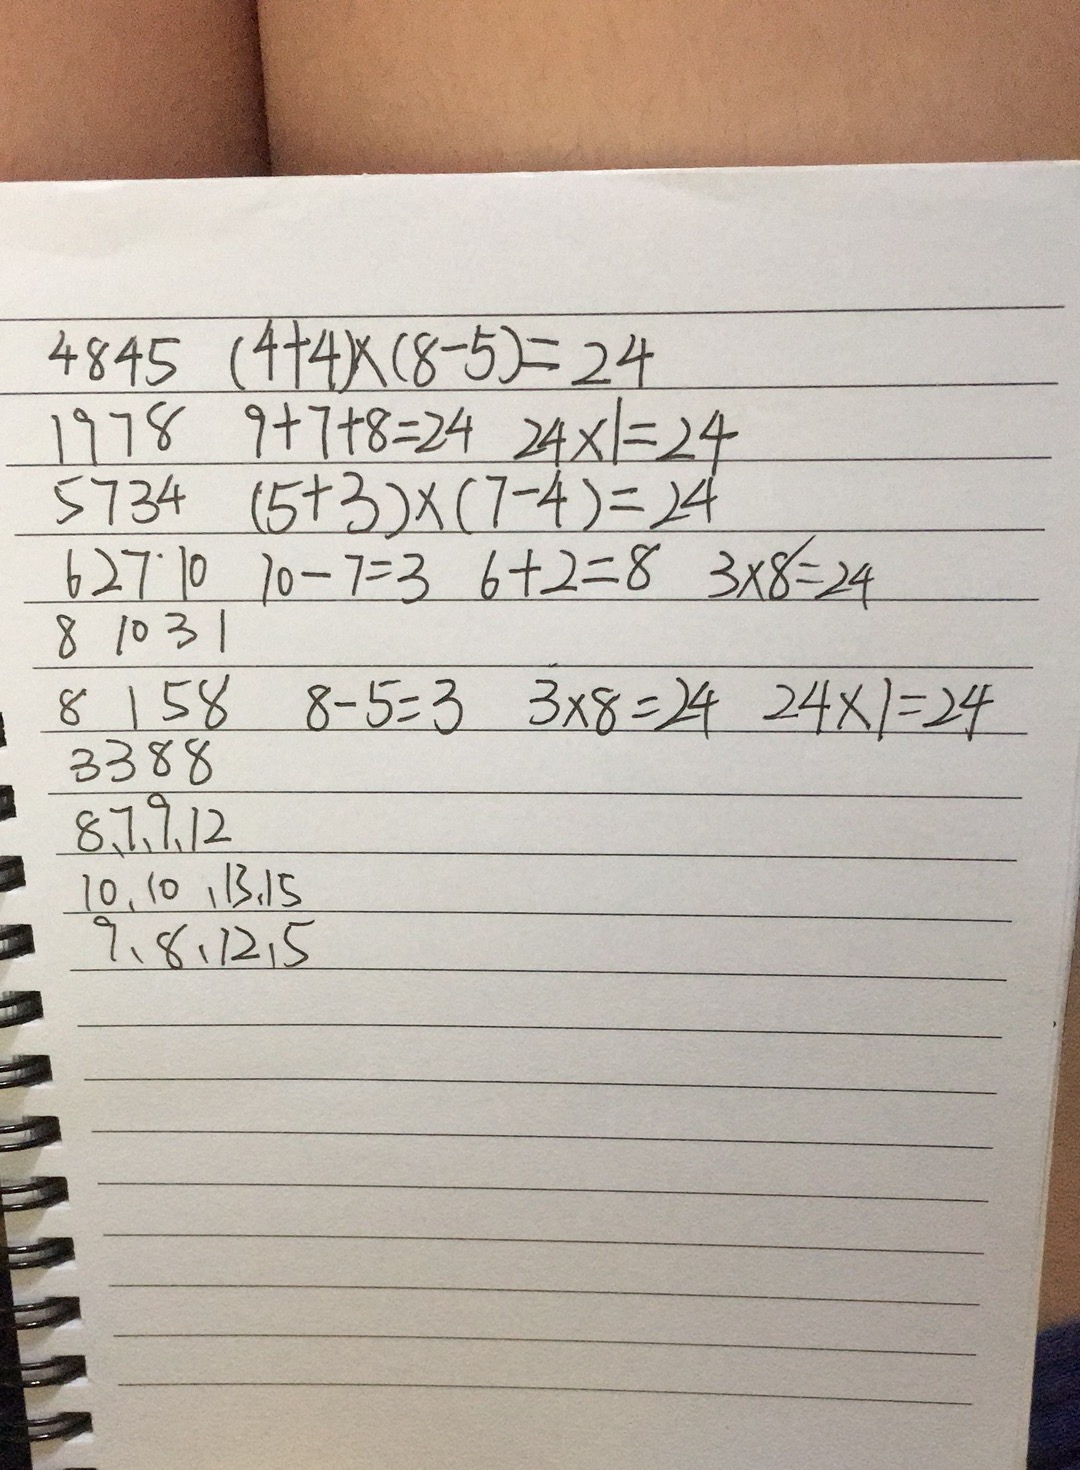 4845 (4+4)×(8-5)=24
1978 9+7+8=24 24×1=24
5734 (5+3)×(7-4)=24
627 10 10-7=3 6+2=8 3×8=24
8 10 3 1
8 1 58 8-5=3 3×8=24 24×1=24
3388
8、7、9、12
10、10、13、15
9、8、12、5